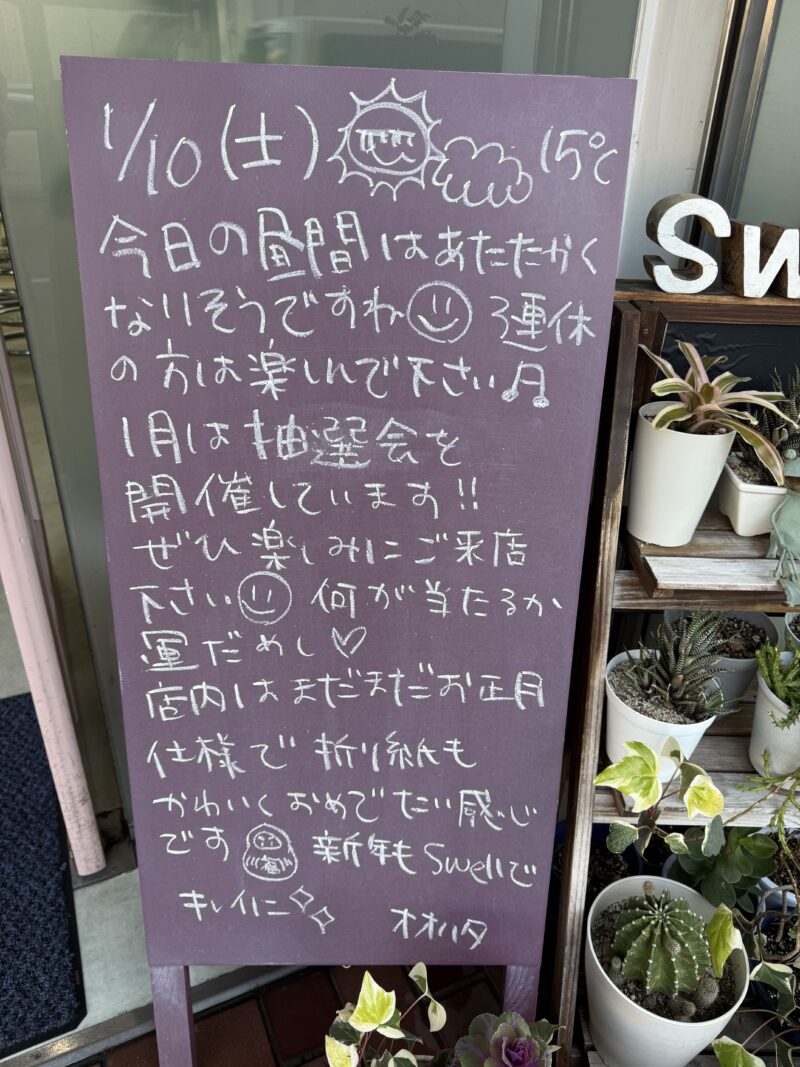 1/10(土) 15℃
今日の昼間はあたたかく
なりそうですね 3連休
の方は楽しんで下さい♫
1月は抽選会を
開催しています!!
ぜひ楽しみにご来店
下さい 何が当たるか
運だめし♡
店内はまだまだお正月
仕様で折り紙も
かわいくおめでたい感じ
です 福 新年もSwellで
キレイに
オオハタ
Sw